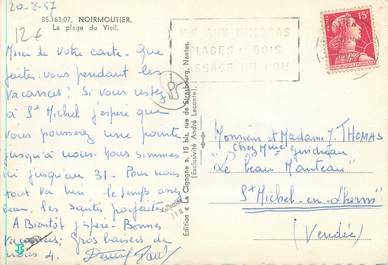 20-8-57
85.163.07. NOIRMOUTIER.
La plage du Vieil.
12€
Merci de votre carte. Que
faite-vous pendant les
vacances? Si vous restez
à St Michel j'espère que
vous pousserez une pointe
jusqu'à nous. Nous sommes
ici jusqu'au 31- Pour nous
tout va bien le temps assez
beau. les santés parfaites
A Bientôt j'espère. Bonnes
vacances; Gros baisers de
nous 4.
Edition « La Cigogne », 15 bis, rue de Strasbourg, Nantes.
(Exclusivité André Leconte)
PLAGES BOIS
PASSAGE DU
15F
Monsieur et Madame J. THOMAS
chez Mme Gendreau
"Le beau Manteau"
St Michel-en-Lherm
(Vendée)